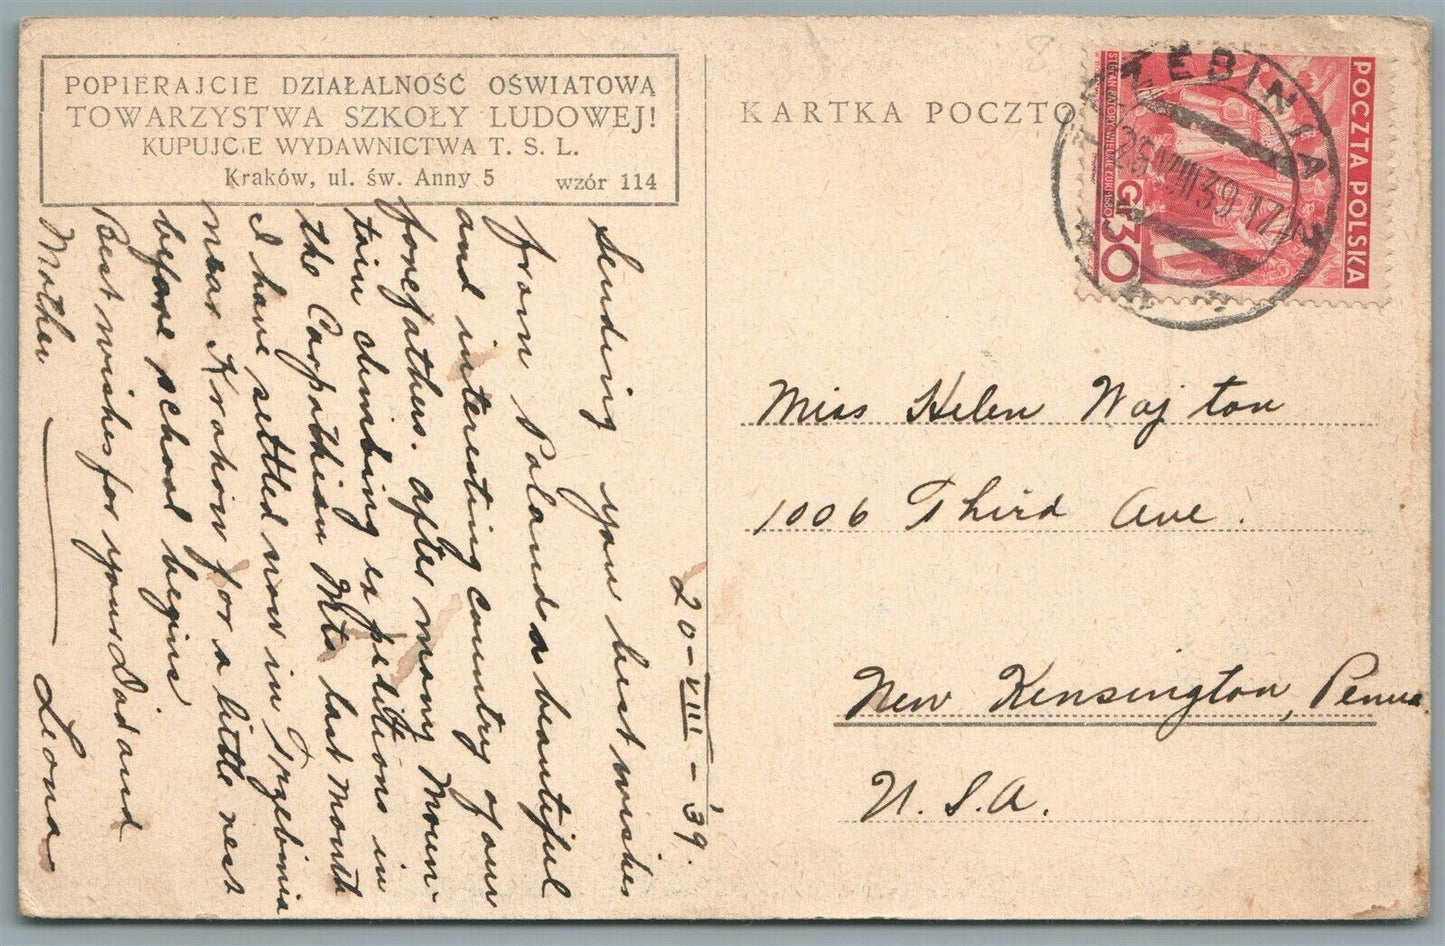 POPIERAJCIE DZIAŁALNOŚĆ OŚWIATOWĄ
TOWARZYSTWA SZKOŁY LUDOWEJ!
KUPUJCIE WYDAWNICTWA T. S. L.
Kraków, ul. św. Anny 5 wzór 114
KARTKA POCZTO
POCZTA POLSKA
STEFAN BATORY
GR 30
TRZEBINIA
26 VIII 39 17
20-VIII-'39.
Sending you best wishes
from Poland a beautiful
and interesting country of our
forefathers. after many moun-
tain climbing expeditions in
the Carpathian Mts last month
I have settled now in Trzebinia
near Krakow for a little rest
before school begins
Best wishes for your Dad and
Mother — Leona
Miss Helen Wojton
1006 Third Ave.
New Kensington, Penna
U.S.A.